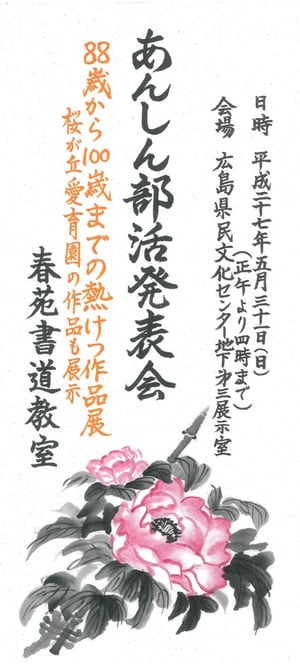 日時　平成二十七年五月三十一日(日)
(正午より四時まで)
会場　広島県民文化センター地下第三展示室
あんしん部活発表会
88歳から100歳までの熱けつ作品展
桜が丘愛育園の作品も展示
春苑書道教室